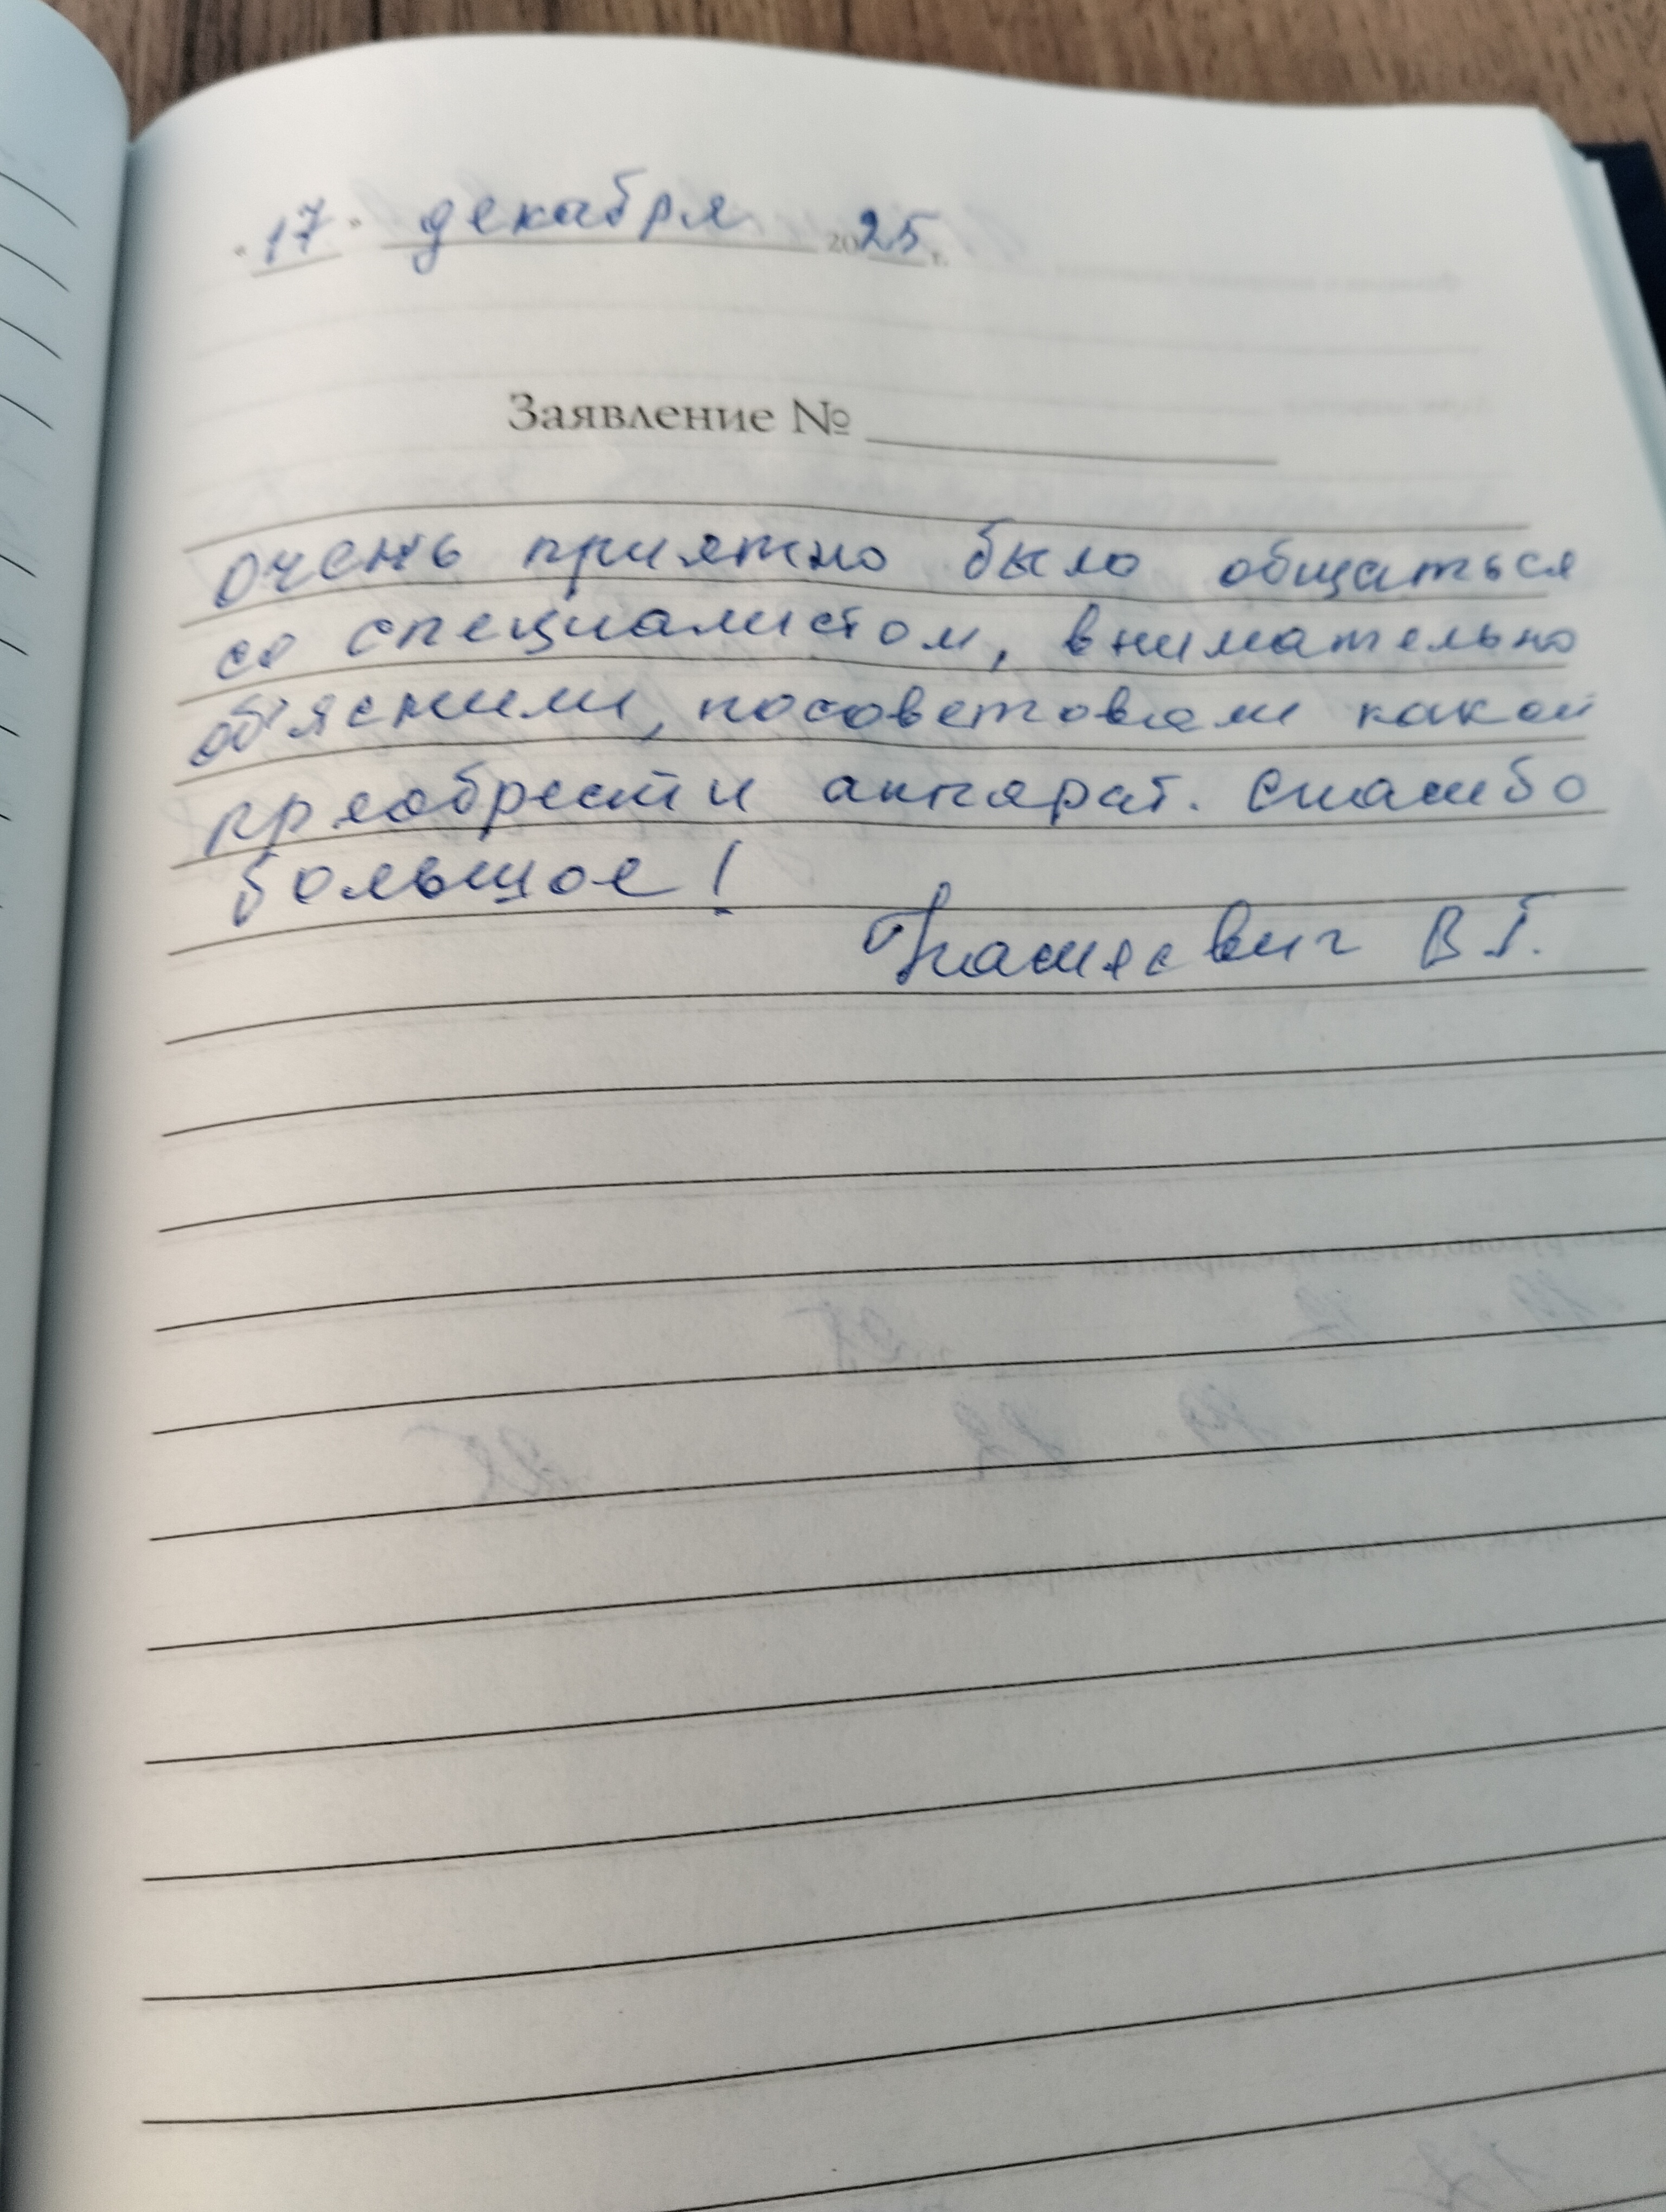 "17" декабря 2025 г.
Заявление №
Очень приятно было общаться
со специалистом, внимательно
об'яснили, посоветовали какой
преобрести аппарат. Спасибо
большое!
В Г.